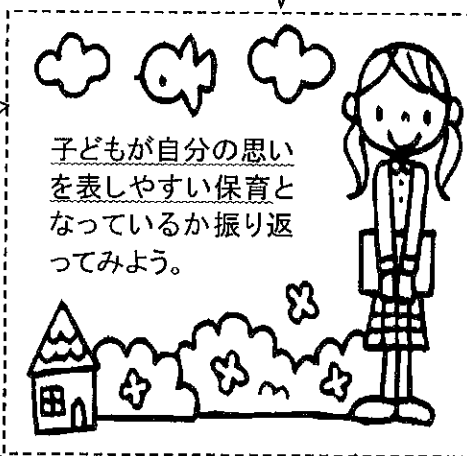 子どもが自分の思い
を表しやすい保育と
なっているか振り返
ってみよう。